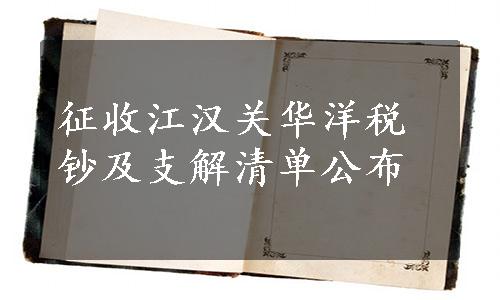 征收江汉关华洋税
钞及支解清单公布